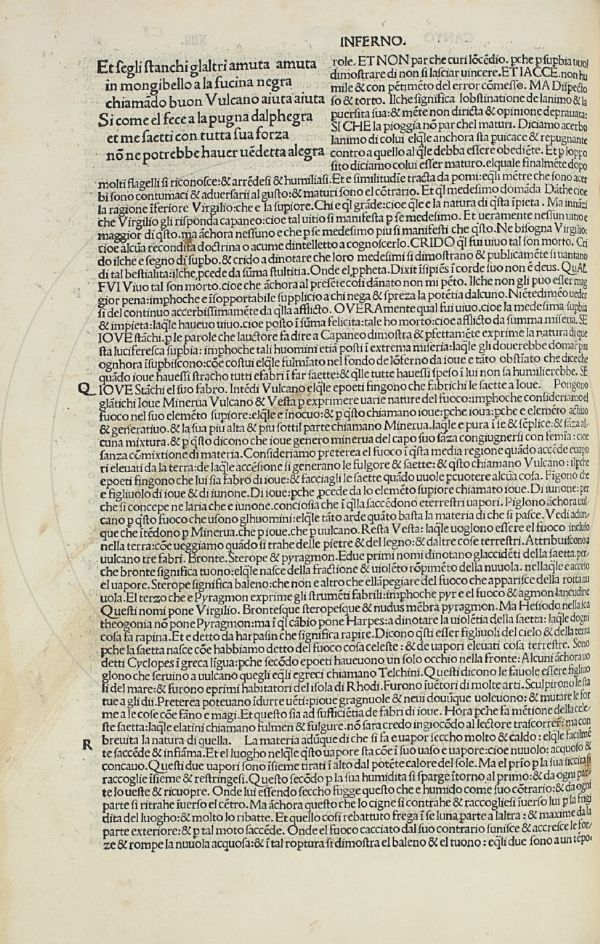 INFERNO.
Et se gli stanchi glaltri amuta amuta
in mongibello a la fucina negra
chiamãdo buon Vulcano aiuta aiuta
Si come el fece a la pugna dalphegra
et me saetti con tutta sua forza
nõ ne potrebbe hauer uẽdetta alegra
role. ET NON par che curi lõcẽdio. pche p supbia uuol
dimostrare di non si lasciar uincere. ET IACCE. non hu
mile & con pẽtimẽto del error cõmesso. MA Dispecto
so & torto. Ilche significa lobstinatione de lanimo & la
puersita sua: & mẽte non diricta & opinione deprauata:
SI CHE la pioggia nõ par chel maturi. Diciamo acerbo
lanimo di colui elq̃le anchora sta puicace & repugnante
contro a quello al q̃le debba essere obediẽte. Et p loppo
sito diciamo colui esser maturo. elquale finalmẽte dopo
molti flagelli si riconosce: & arrẽdesi & humiliasi. Et e similitudĩe tracta da pomi: eq̃li mẽtre che sono acer
bi sono contumaci & aduersarii al gusto: & maturi sono el cõtrario. Et q̃l medesimo domãda Dãthe cioe
la ragione ĩferiore Virgilio: che e la supiore. Chi e q̃l grãde: cioe q̃le e la natura di q̃sta ĩpieta. Ma innãzi
che Virgilio gli risponda capaneo: cioe tal uitio si manifesta p se medesimo. Et ueramente nessun uitio e
maggior di q̃sto. ma ãchora nessuno e che p se medesimo piu si manifesti che q̃sto. Ne bisogna Virgilio:
cioe alcũa recondita doctrina o acume dintelletto a cognoscerlo. CRIDO q̃l fui uiuo tal son morto. Cri
do ilche e segno di supbo. & crido a dinotare che loro medesimi si dimostrano & publicamẽte si uantano
di tal bestialita: ilche pcede da sũma stultitia. Onde el ppheta. Dixit ĩsipiẽs ĩ corde suo non ẽ deus. QuAL
FVI Viuo tal son morto. cioe che ãchora al presẽte cosi dãnato non mi pẽto. Ilche non gli puo esser mag
gior pena: imphoche e isopportabile supplicio a chi nega & spreza la potẽtia dalcuno. Niẽtedimeo ueder
si del continuo accerbissimamẽte da q̃lla afflicto. OVERAmente qual fui uiuo. cioe la medesima supbia
& impieta: laq̃le haueuo uiuo. cioe posto ĩ sũma felicita: tale ho morto: cioe afflicto da summa miseria. SE
IOVE stãchi. p le parole che lauctore fa dire a Capaneo dimostra & pfettamẽte exprime la natura di que
sta luciferesca supbia: imphoche tali huomini etiã posti ĩ extrema miseria: laq̃le gli douerebbe domar piu
ognhora ĩsupbiscono: cõe costui elq̃le fulmĩato nel fondo de lõferno da ioue e tãto obstĩato che dice che
quãdo ioue hauessi stracho tutti efabri ĩ far saette: & q̃lle tutte hauessi speso ĩ lui non sa humilierebbe. SE
Q IOVE Stãchi el suo fabro. Intẽdi Vulcano elq̃le epoeti fingono che fabrichi le saette a Ioue. Pongono
glãtichi Ioue Minerua Vulcano & Vesta p exprimere uarie nature del fuoco: imphoche consideriamo el
fuoco nel suo elemẽto supiore: elq̃le e inocuo: & p q̃sto chiamano ioue: pche ioua: pche e elemẽto actiuo
& generatiuo. & la sua piu alta & piu sottil parte chiamano Minerua. laq̃le e pura ĩ se & sẽplice: & sãza al
cuna mixtura. & p q̃sto dicono che ioue genero minerua del capo suo sãza congiugnersi con femĩa: cioe
sanza cõmixtione di materia. Consideriamo preterea el fuoco ĩ q̃sta media regione quãdo accẽde euapo
ri eleuati da la terra: de laq̃le accẽsione si generano le fulgore & saette: & q̃sto chiamano Vulcano: ilpche
epoeti fingono che lui sia fabro di ioue: & facciagli le saette quãdo uuole pcuotere alcũa cosa. Figono che
e figliuolo di ioue & di iunone. Di ioue: pche pcede da lo elemẽto supiore chiamato ioue. Di iunone: per
che si concepe ne laria che e iunone. conciosia che ĩ q̃lla saccẽdono eterrestri uapori. Piglono ãchora uul
cano p q̃sto fuoco che usono glhuomini: elq̃le tãto arde quãto basta la materia di che si pasce. Vedi adun
que che itẽdono p Minerua. che p ioue. che p uulcano. Resta Vesta: laq̃le uoglono essere el fuoco incluso
nella terra: cõe ueggiamo quãdo si trahe delle pietre & del legno: & daltre cose terrestri. Attribuiscono a
uulcano tre fabri. Bronte. Sterope & pyragmon. Edue primi nomi dinotano glaccidẽti della saetta. per
che bronte significa tuono: elq̃le nasce della fractione & uiolẽto rõpimẽto della nuuola. nella q̃le e acceso
el uapore. Sterope significa baleno: che non e altro che ellãpegiare del fuoco che apparisce della rotta nu
uola. El terzo che e Pyragmon exprime gli strumẽti fabrili: imphoche pyr e el fuoco & agmon lancudine
Questi nomi pone Virgilio. Brontesque steropesque & nudus mẽbra pyragmon. Ma Hesiodo nella sua
theogonia nõ pone Pyragmon: ma ĩ q̃l cãbio pone Harpes: a dinotare la uiolẽtia della saetta: laq̃le dogni
cosa fa rapina. Et e detto da harpasin che significa rapire. Dicono q̃sti esser figliuoli del cielo & della terra
pche la saetta nasce cõe habbiamo detto del fuoco cosa celeste: & de uapori eleuati cosa terrestre. Sono
detti Cyclopes ĩ greca lĩgua: pche secõdo epoeti haueuono un solo occhio nella fronte: Alcuni ãchora uo
glono che seruino a uulcano quegli eq̃li egreci chiamano Telchini. Questi dicono le fauole essere figliuo
li del mare: & furono eprimi habitatori del isola di Rhodi. Furono iuẽtori di molte arti. Sculpirono le sta
tue a gli dii. Preterea poteuano idurre uẽti: pioue gragnuole & neui douũque uoleuono: & mutare le for
me a le cose cõe fãno e magi. Et questo sia ad sufficiẽtia de fabri di ioue. Hora pche fa mẽtione della cele
ste saetta: laq̃le elatini chiamano fulmen & fulgure. nõ sara credo ingiocõdo al lectore trascorrer: ma con
R breuita la natura di quella. La materia adũque di che si fa e uapor seccho molto & caldo: elq̃le facilmẽ
te saccẽde & infiãma. Et el luogho nelq̃le q̃sto uapore sta cõe ĩ suo uaso e uapore: cioe nuuolo: acquoso &
concauo. Questi due uapori sono ĩsieme tirati ĩ alto dal potẽte calore del sole. Ma el prio p la sua siccita si
raccoglie ĩsieme & restringesi. Questo secõdo p la sua humidita si sparge ĩtorno al primo: & da ogni par
te lo ueste & ricuopre. Onde lui essendo seccho fugge questo che e humido come suo cõtrario: & da ogni
parte si ritrahe iuerso el cẽtro. Ma ãchora questo che lo cigne si contrahe & raccogliesi iuerso lui p la frigi
dita del luogho: & molto lo ribatte. Et quello cosi rebattuto frega ĩ se luna parte a laltra: & maxime da la
parte exteriore: & p tal moto saccẽde. Onde el fuoco cacciato dal suo contrario sunisce & accresce le for
ze & rompe la nuuola acquosa: & ĩ tal roptura si dimostra el baleno & el tuono: eq̃li due sono a un tẽpo